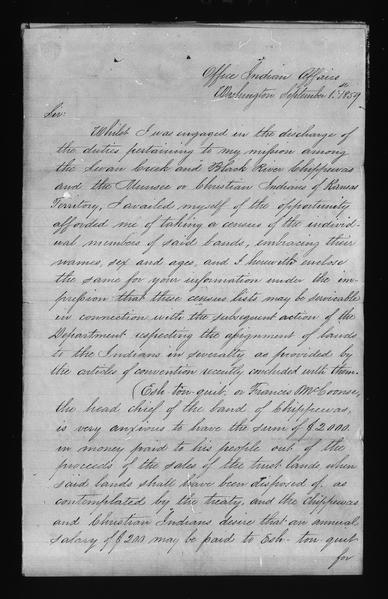 Office Indian Affairs
Washington September 1st 1859
Sir:
Whilst I was engaged in the discharge of
the duties pertaining to my mission among
the Swan Creek and Black River Chippewas
and the Munsee or Christian Indians of Kansas
Territory, I availed myself of the opportunity
afforded me of taking a census of the individ-
ual members of said bands, embracing their
names, sex and ages, and I herewith enclose
the same for your information under the im-
pression that these census lists may be serviceable
in connection with the subsequent action of the
Department respecting the assignment of lands
to the Indians in severalty as provided by
the articles of convention recently concluded with them.
(Esh-ton-quit or Francis McCoonse,
the head chief of the band of Chippewas,
is very anxious to have the sum of $2000.
in money paid to his people out of the
proceeds of the sales of the trust lands when
said lands shall have been disposed of as
contemplated by the treaty, and the Chippewas
and Christian Indians desire that an annual
salary of $200 may be paid to Esh-ton-quit
for